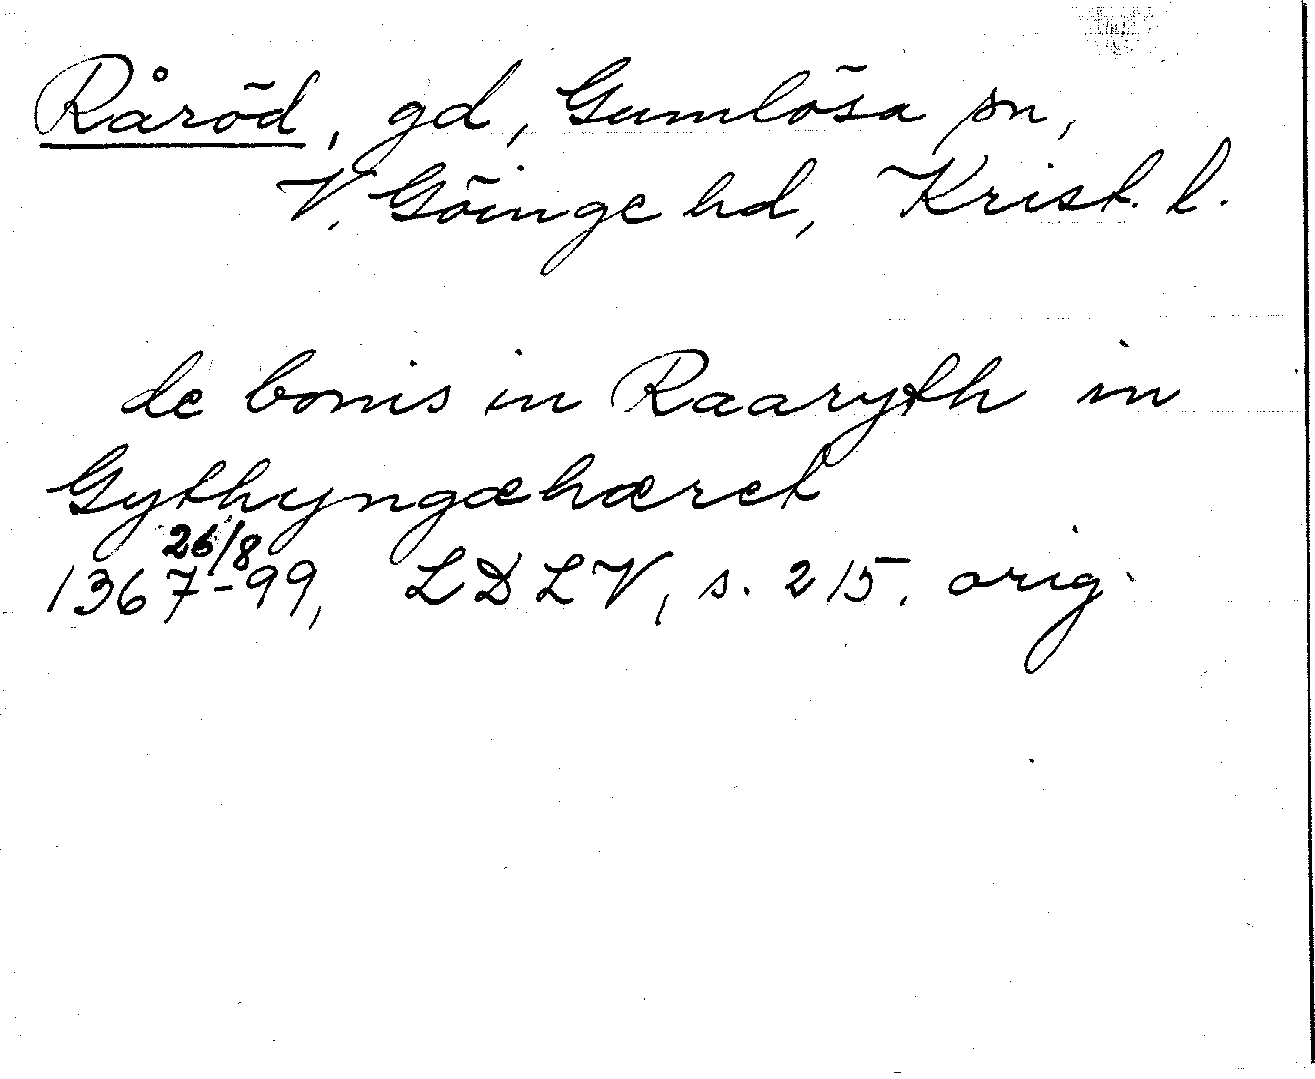 Råröd, gd, Gumlösa sn,
V. Göinge hd, Krist. l.
de bonis in Raaryth in
Gythyngæhæret
26/8
1367-99, LDLV, s. 215. orig.